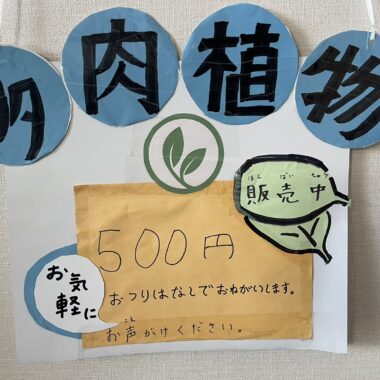 多肉植物
販売中
はん ばい ちゅう
500円
おつりはなしでおねがいします。
お気軽に
お声がけください。
こえ